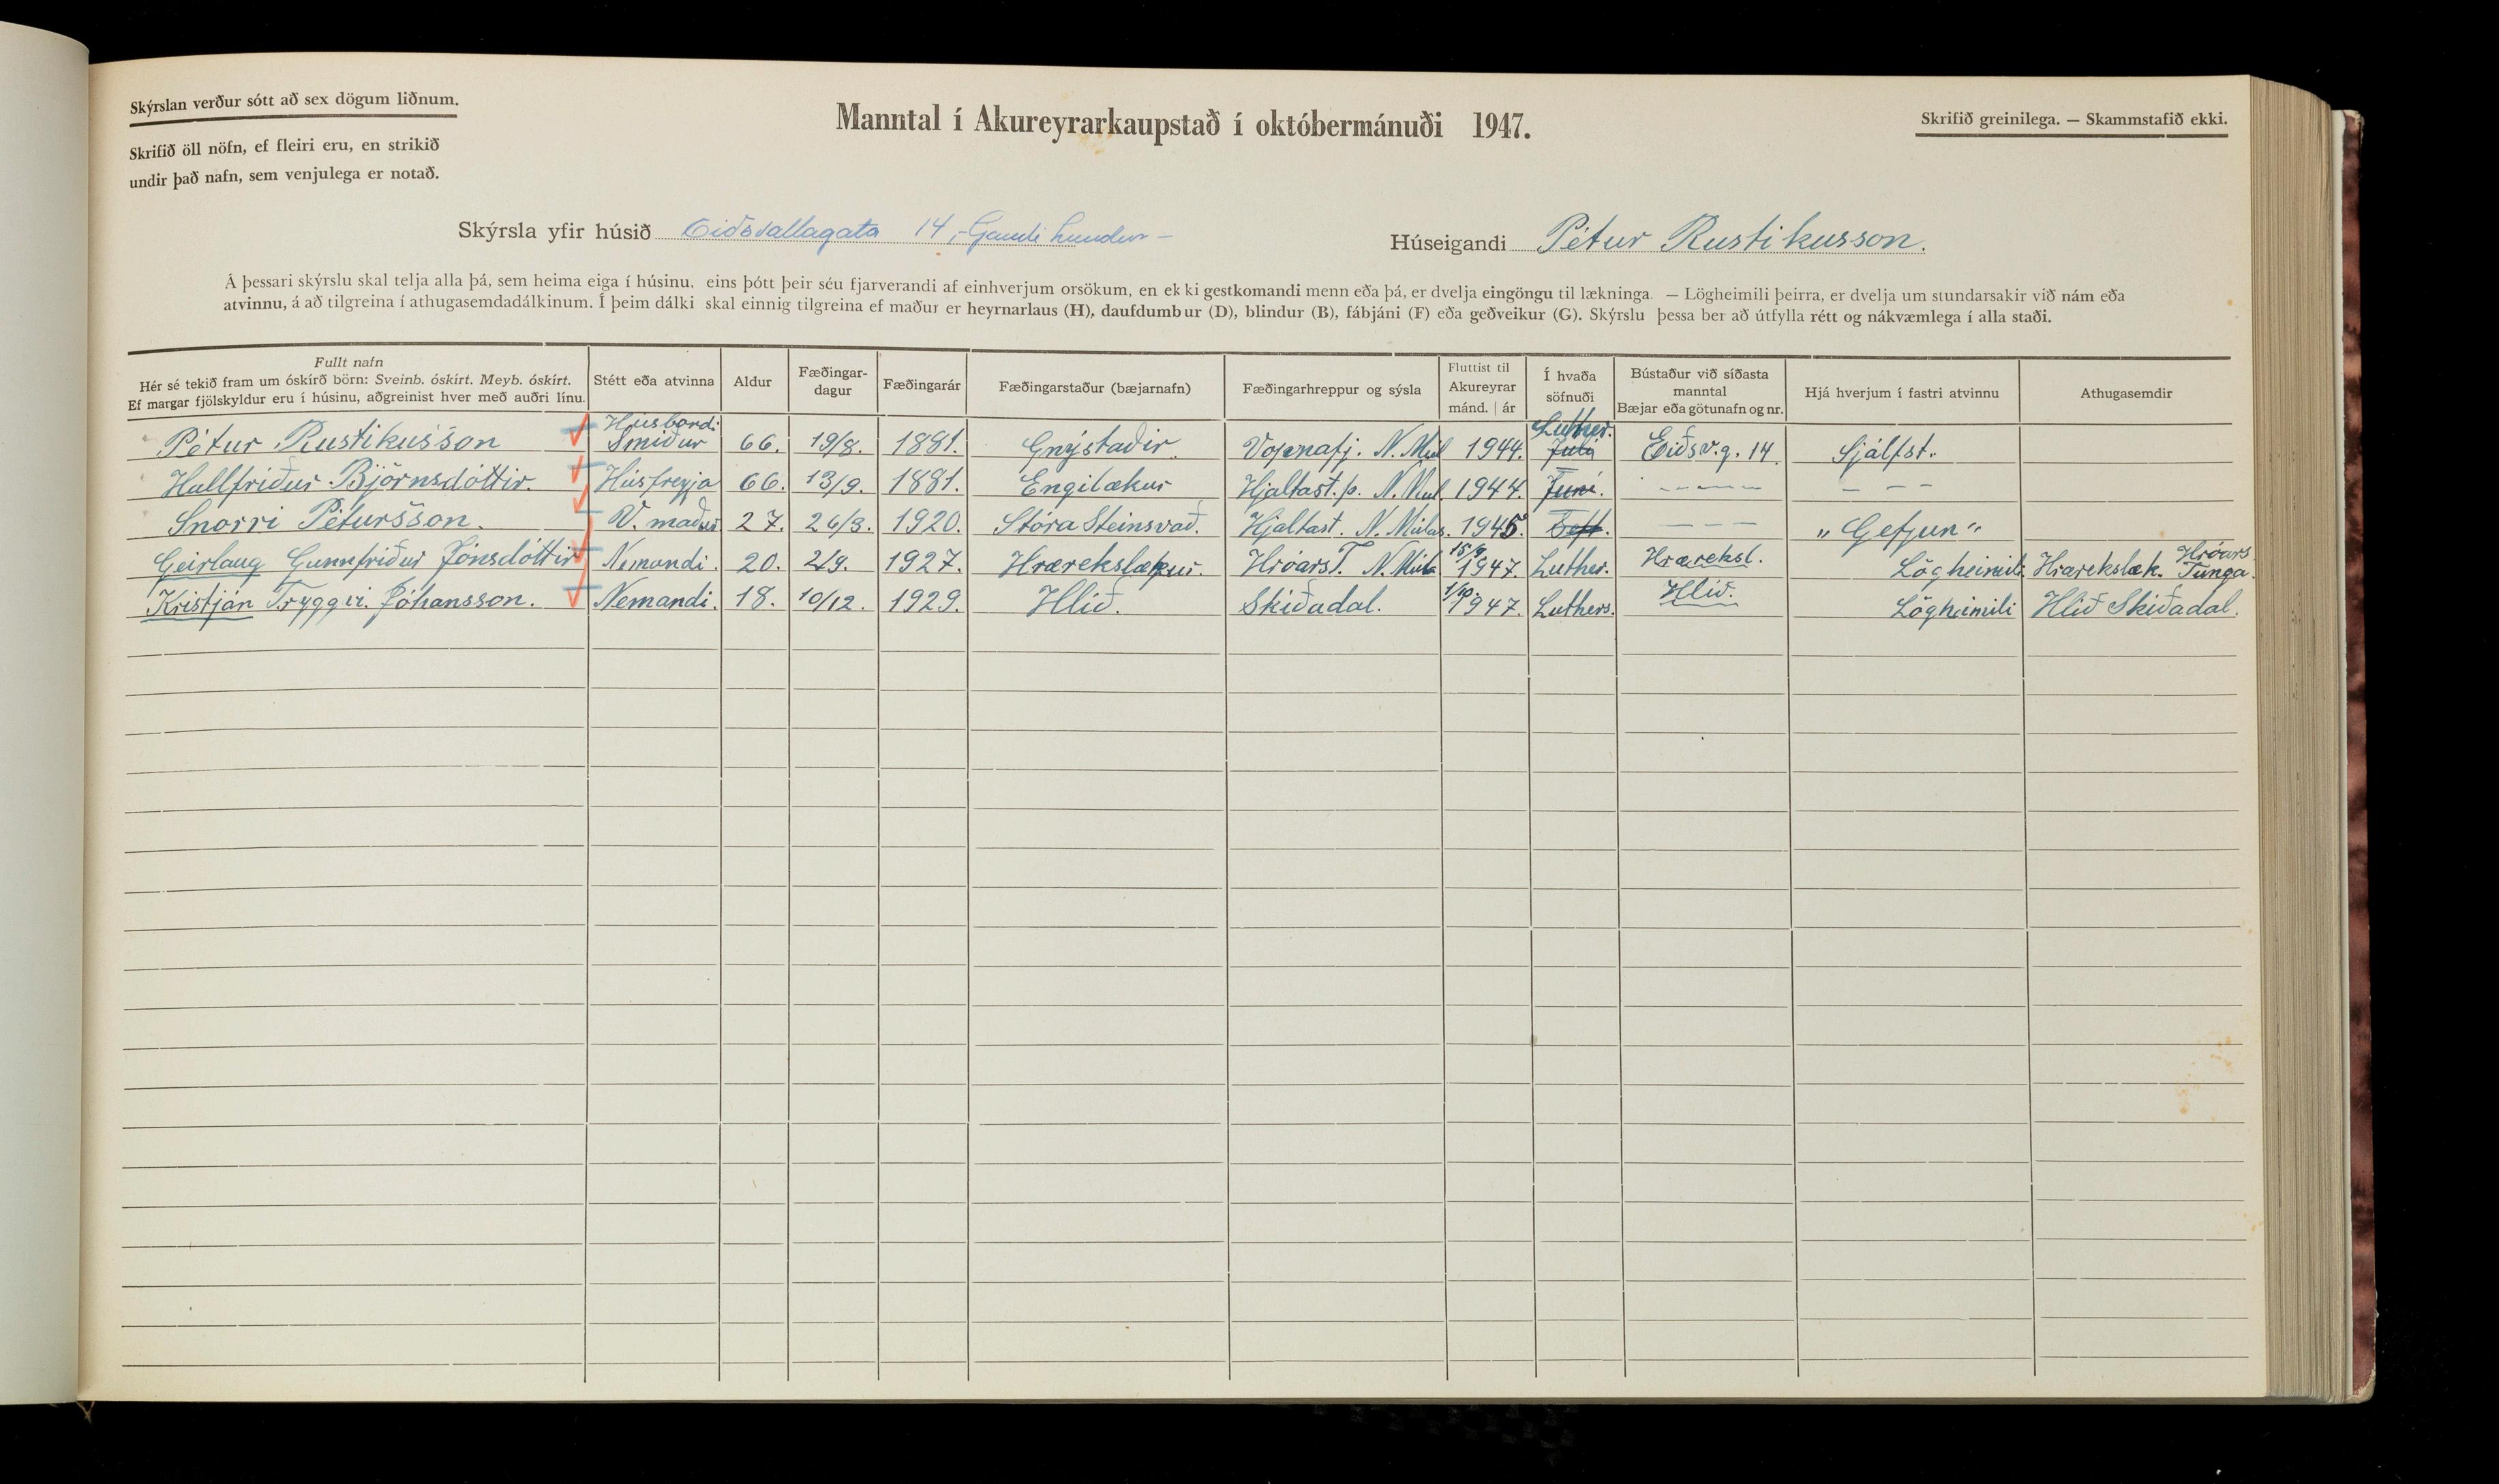 Skýrslan verður sótt að sex dögum liðnum.
Skrifið öll nöfn, ef fleiri eru, en strikið
undir það nafn, sem venjulega er notað.
Manntal í Akureyrarkaupstað í októbermánuði 1947.
Skrifið greinilega. — Skammstafið ekki.
Skýrsla yfir húsið Eiðsvallagata 14, - Gamli Lundur -
Húseigandi Pétur Rustikusson.
Á þessari skýrslu skal telja alla þá, sem heima eiga í húsinu, eins þótt þeir séu fjarverandi af einhverjum orsökum, en ekki gestkomandi menn eða þá, er dvelja eingöngu til lækninga. — Lögheimili þeirra, er dvelja um stundarsakir við nám eða
atvinnu, á að tilgreina í athugasemdadálkinum. Í þeim dálki skal einnig tilgreina ef maður er heyrnarlaus (H), daufdumbur (D), blindur (B), fábjáni (F) eða geðveikur (G). Skýrslu þessa ber að útfylla rétt og nákvæmlega í alla staði.
Fullt nafn
Hér sé tekið fram um óskírð börn: Sveinb. óskírt. Meyb. óskírt.
Ef margar fjölskyldur eru í húsinu, aðgreinist hver með auðri línu.
Stétt eða atvinna
Aldur
Fæðingar-
dagur
Fæðingarár
Fæðingarstaður (bæjarnafn)
Fæðingarhreppur og sýsla
Fluttist til
Akureyrar
mánd. | ár
Í hvaða
söfnuði
Bústaður við síðasta
manntal
Bæjar eða götunafn og nr.
Hjá hverjum í fastri atvinnu
Athugasemdir
Pétur Rustikusson Húsbondi Smiður 66. 19/8. 1881. Gnýstaðir. Vopnafj. N. Múl 1944. Luther. Júlí Eiðsv.g. 14. Sjálfst.
Hallfríður Björnsdóttir. Húsfreyja 66. 13/9. 1881. Engilækur Hjaltast.þ. N. Múl. 1944. Júní. — — — — — —
Snorri Pétursson. V. maður 27. 26/3. 1920. Stóra Steinsvað. Hjaltast. N. Múlas. 1945. Sept. — — — „Gefjun"
Geirlaug Gunnfríður Jónsdóttir Nemandi. 20. 2/9. 1927. Hrærekslækur. HróarsT. N. Múla 15/9 1947. Luther. Hræreksl. Lögheimili. Hrærekslæk. Hróars Tunga.
Kristján Tryggvi Jóhansson. Nemandi. 18. 10/12. 1929. Hlíð. Skíðadal. 1/10. 1947. Luthers. Hlíð. Lögheimili Hlíð Skíðadal.